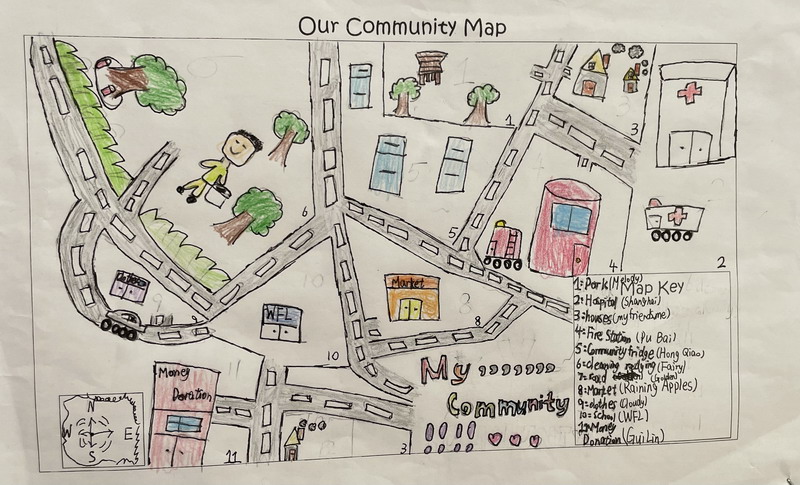 Our Community Map
1
3
1
3
5
6
5
4
2
Map Key
1=Park (Melody)
2=Hospital (Shanghai)
3=houses (my friend+me)
4=Fire Station (Pu Bai)
5=Community fridge (Hong Qiao)
6=Cleaning (Fairy)
7=Food (Golden)
8=Market (Kaining Apples)
9=clothes (Cloudy)
10=School (WFL)
11=Money
Donation (Gui Lin)
7
Market
8
8
9
9
10
WFL
10
My
Community
Money
Donation
11
11
3
N
W
E
S